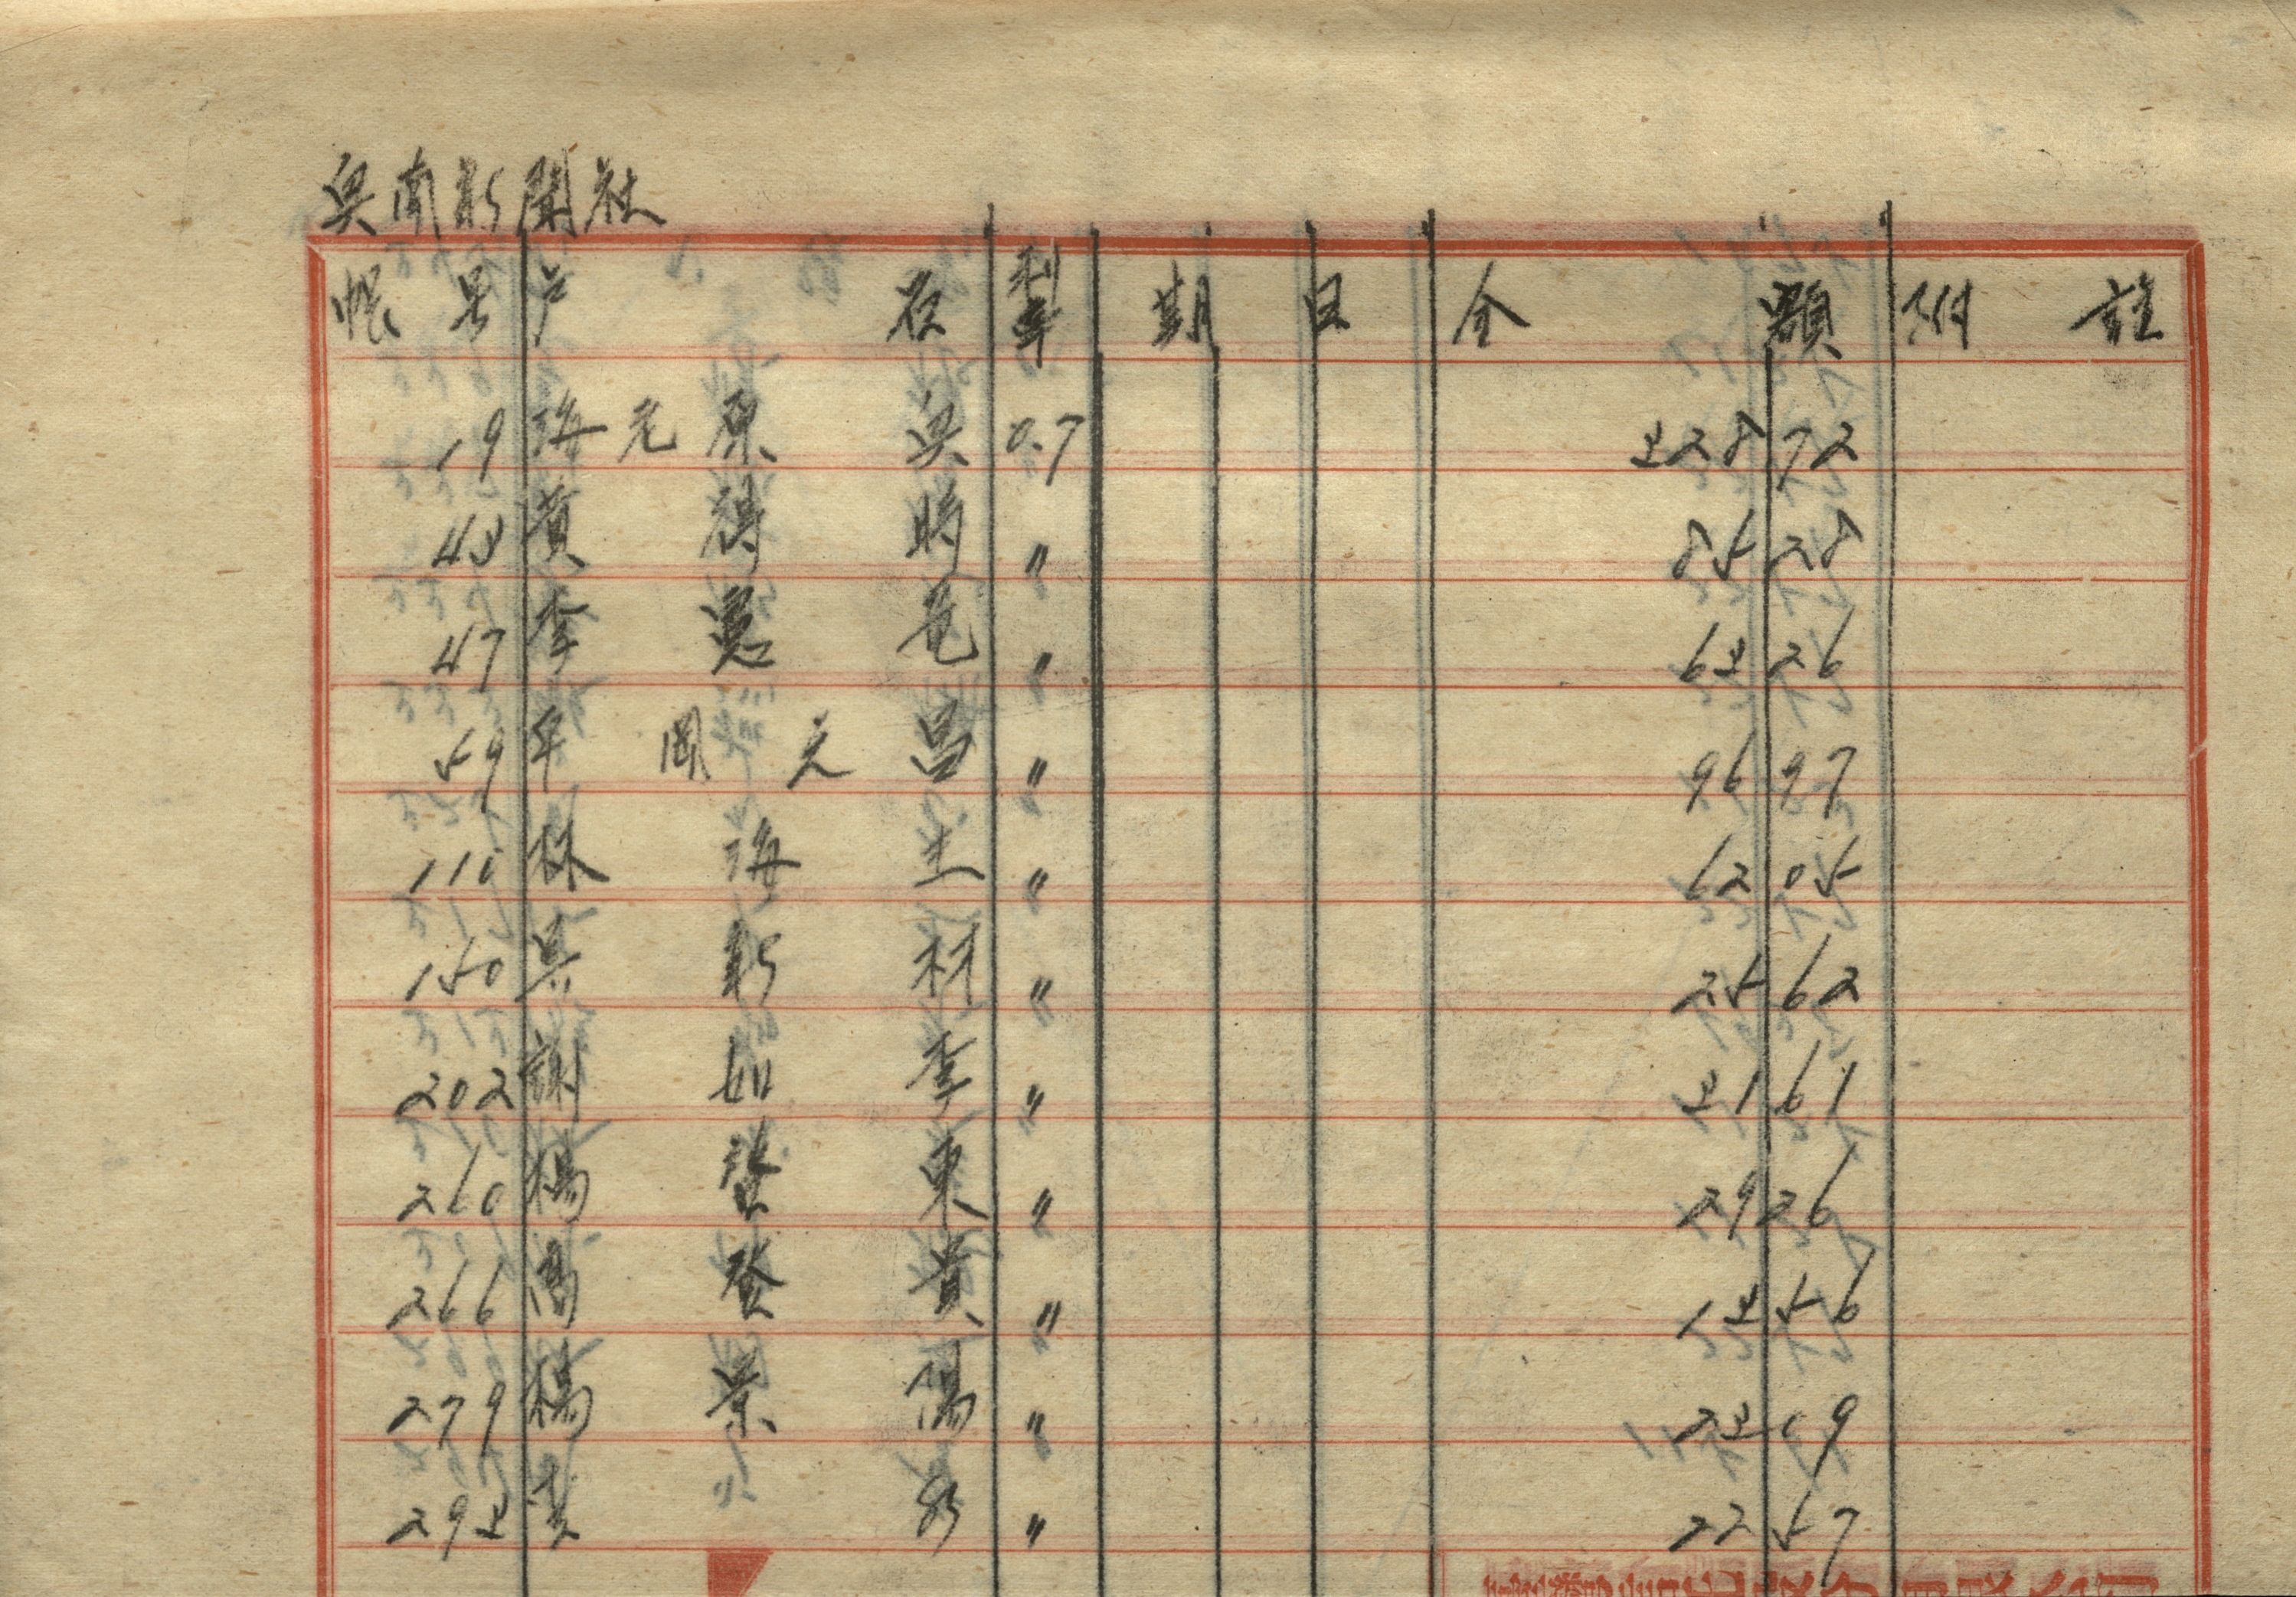 吳南新聞社
帳号 户名 利率 期日 金額 附註
19 海元原吳 0.7 328 72
43 黃得時 〃 85 28
47 李 竜 〃 63 26
59 年岡元昌 〃 96 97
110 林海土 〃 62 05
150 吳新材 〃 25 62
202 謝如李 〃 31 61
260 楊 東 〃 29 26
266 高登貴 〃 13 56
279 楊業傷 〃 23 09
293 〃 22 57